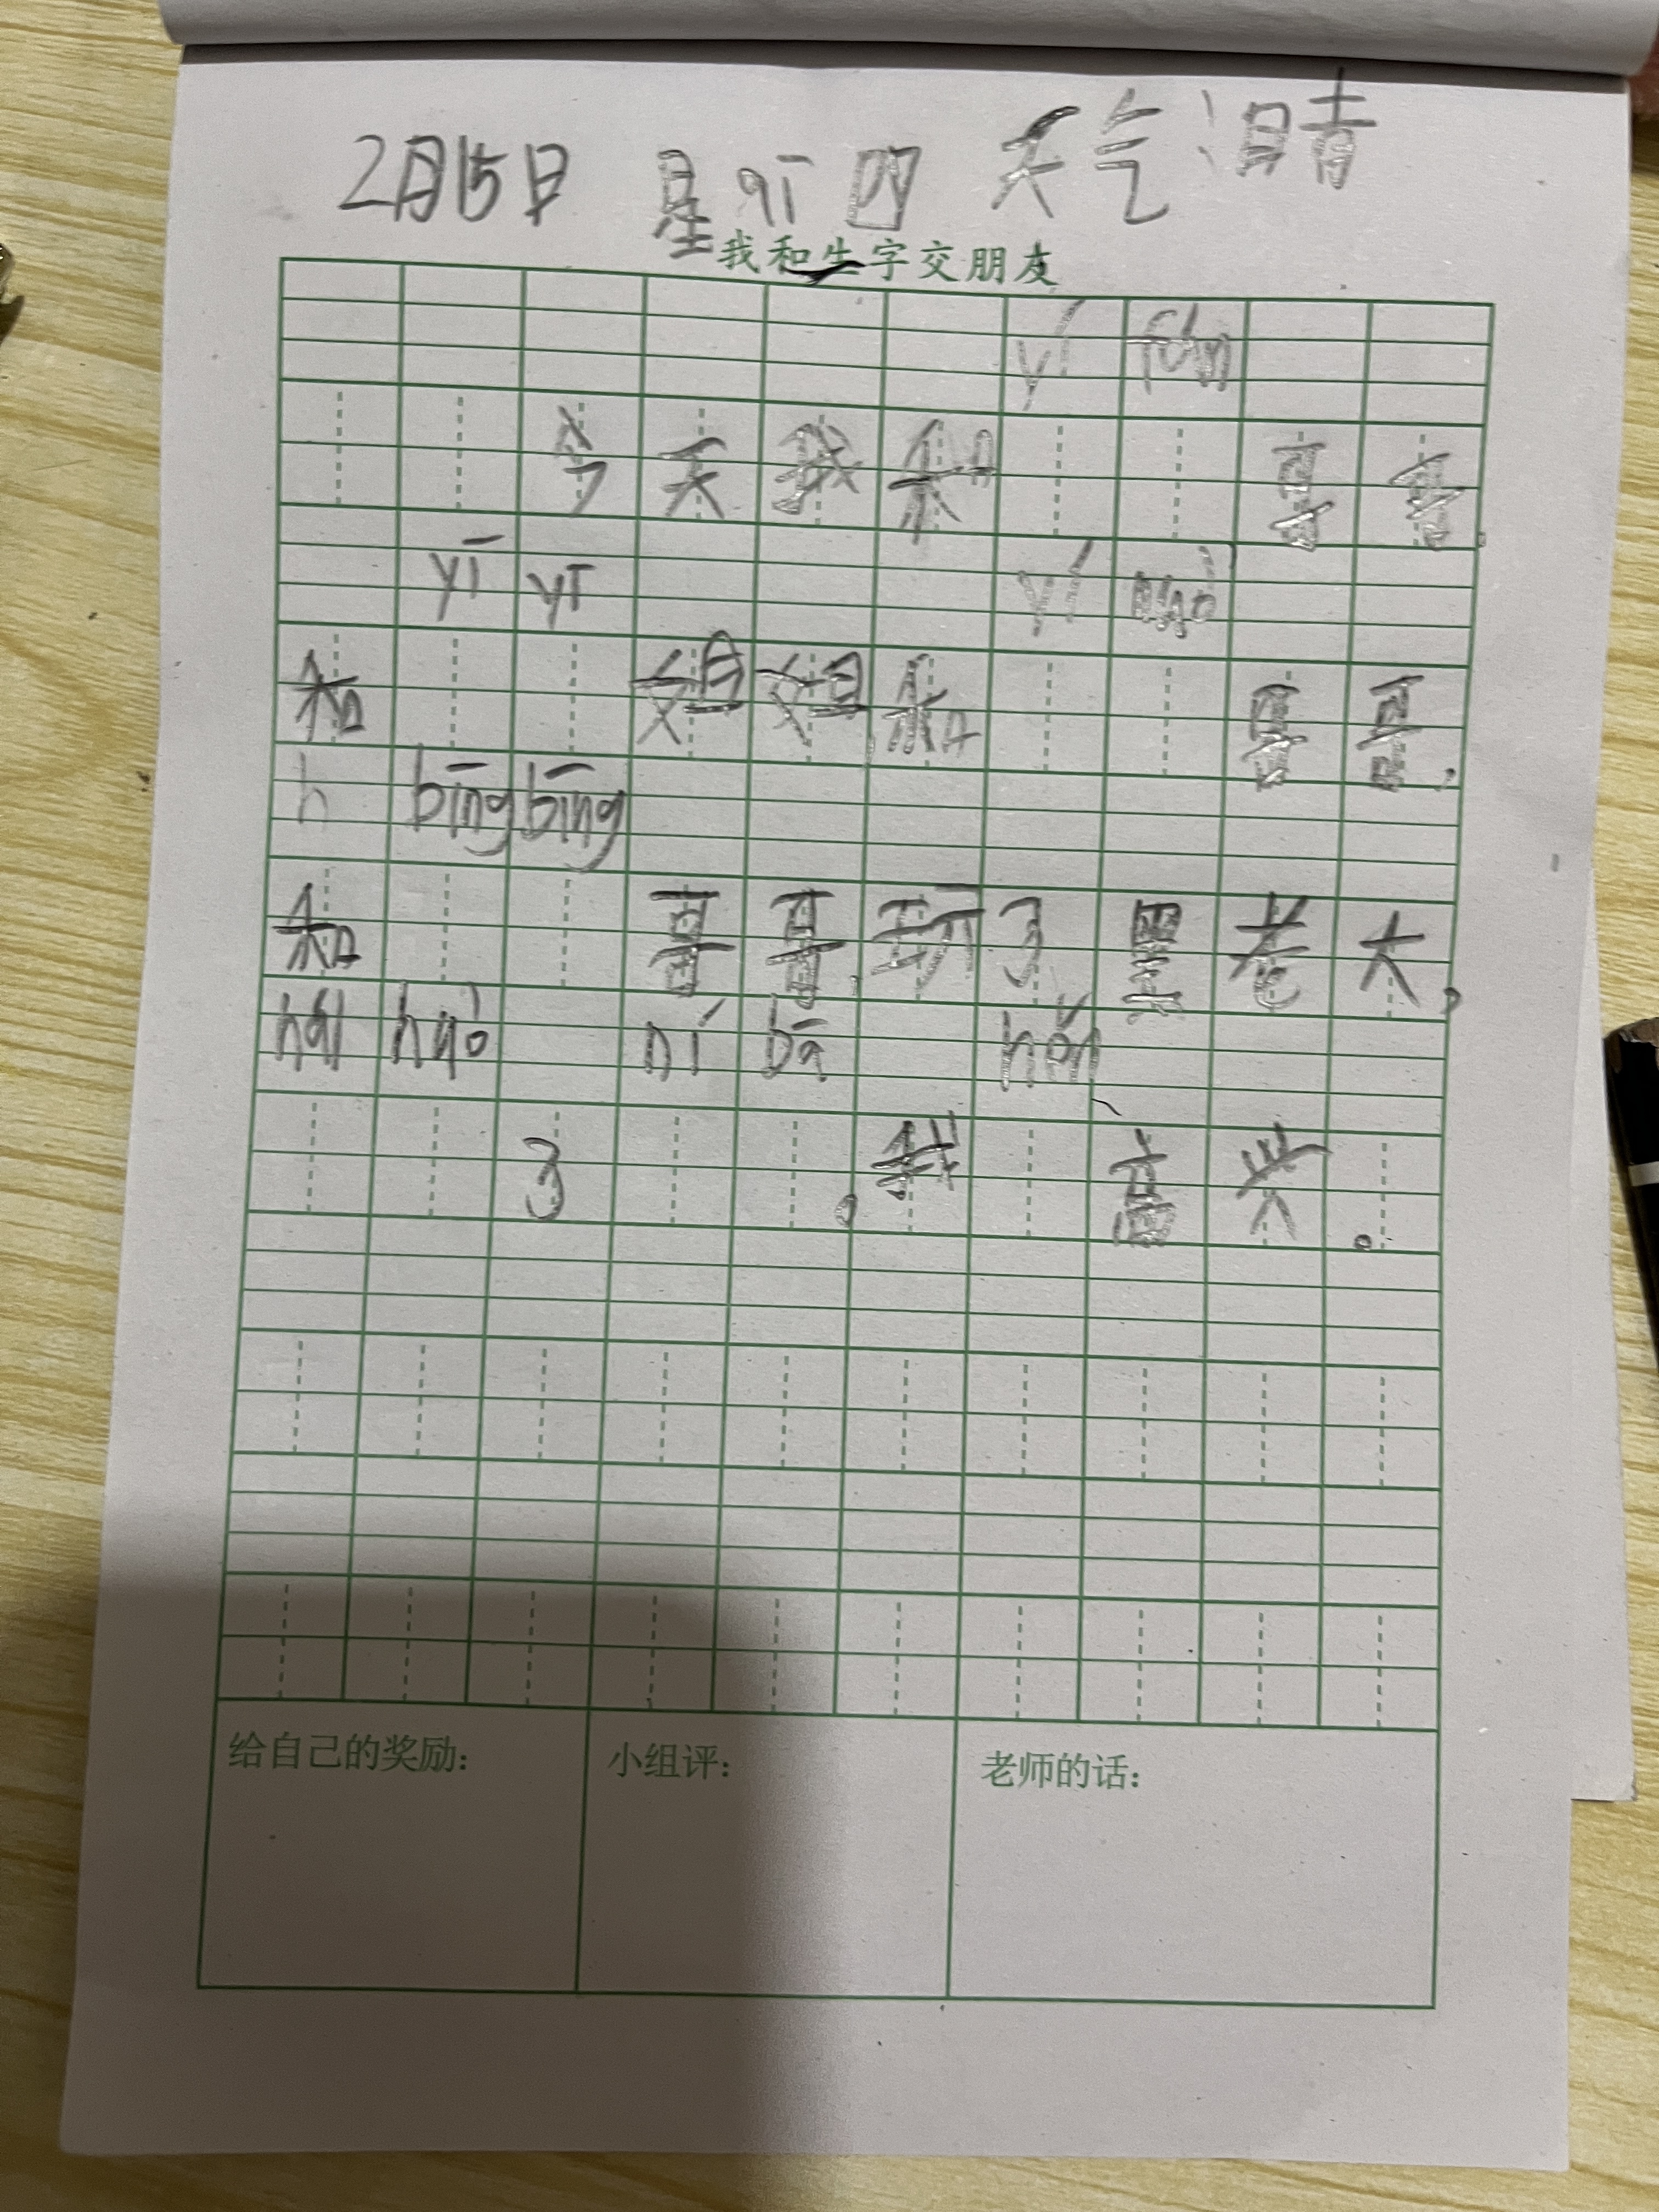 2月15日 星qī四 天气:晴
我和生字交朋友
yí fán
今天我和 哥哥,
yī yī yí nuò
和 姐姐,和 哥哥,
h bīng bīng
和 哥哥,玩了黑老大,
hái huò ní bā hěn
了 。我 高兴。
给自己的奖励: 小组评: 老师的话: